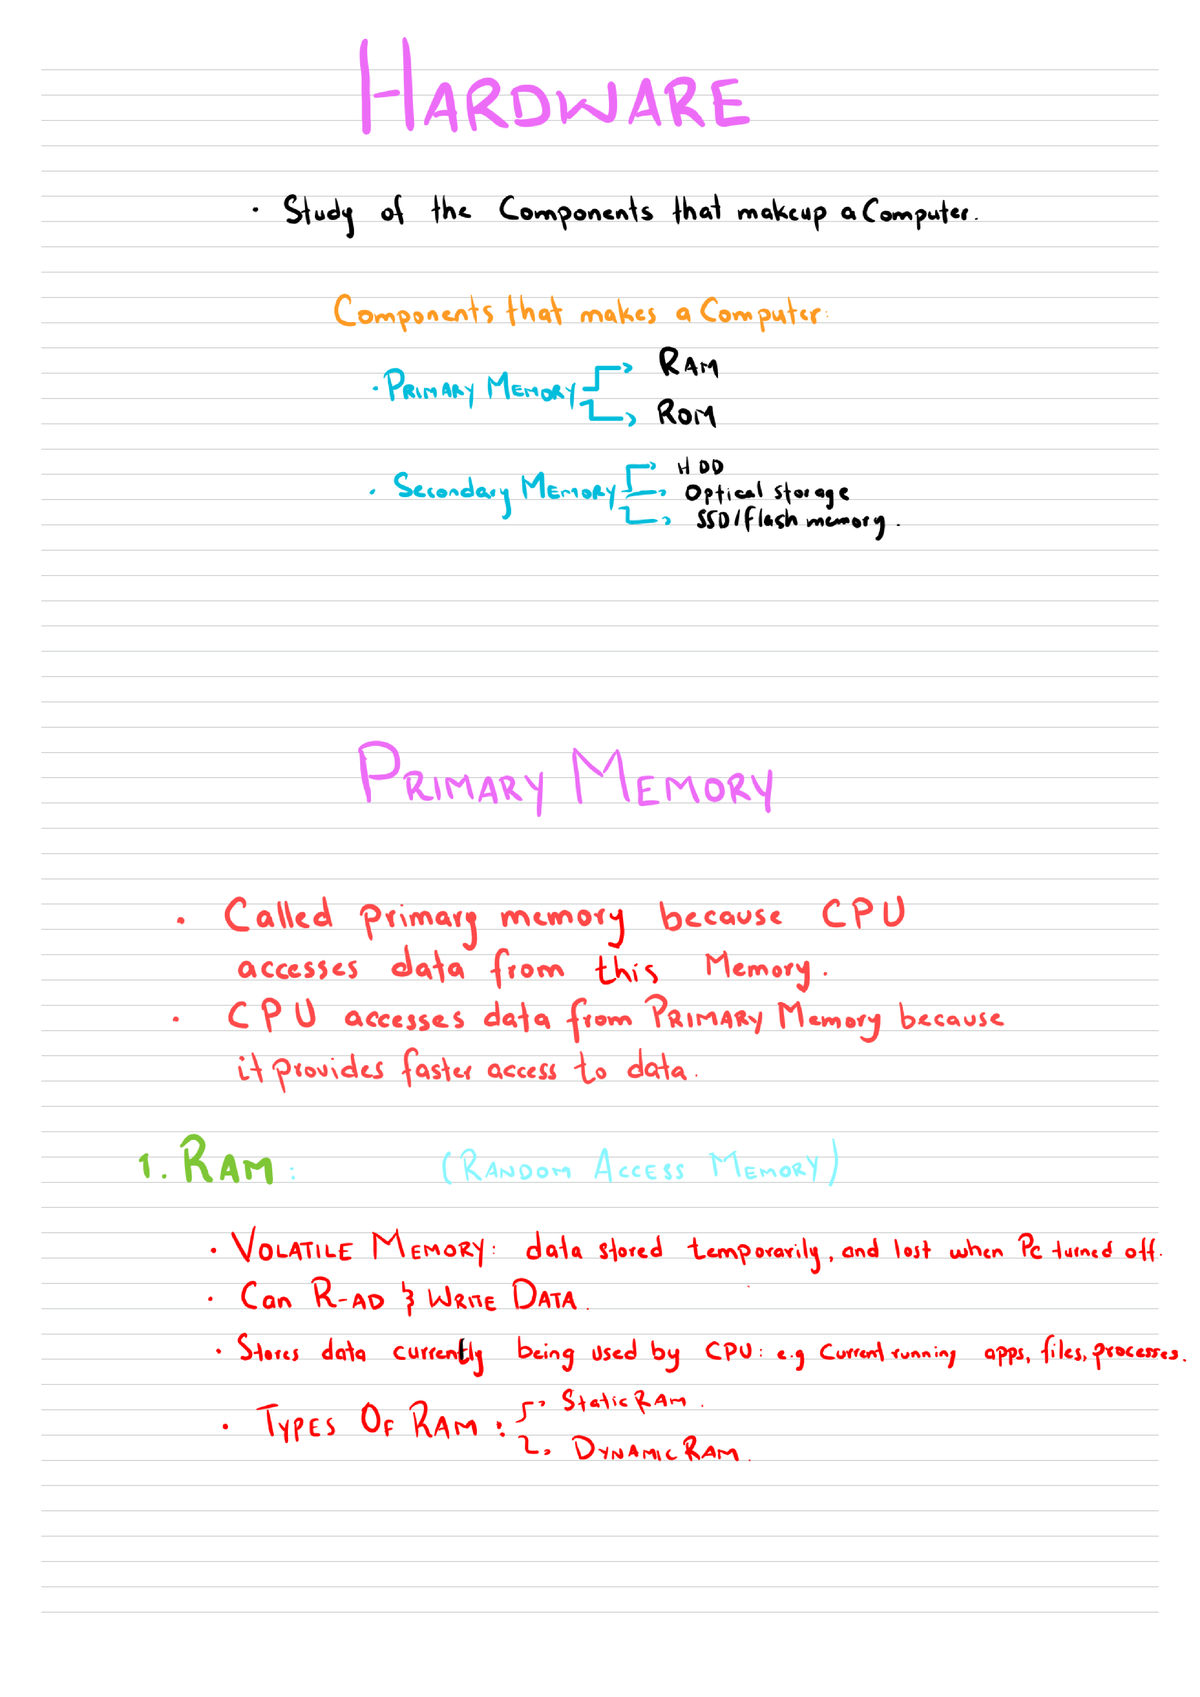 HARDWARE
· Study of the Components that makeup a Computer.
Components that makes a Computer:
· PRIMARY MEMORY
RAM
ROM
· Secondary MEMORY
HDD
Optical storage
SSD/flash memory.
PRIMARY MEMORY
· Called primary memory because CPU
accesses data from this Memory.
· CPU accesses data from PRIMARY Memory because
it provides faster access to data.
1. RAM: (RANDOM ACCESS MEMORY)
· VOLATILE MEMORY: data stored temporarily, and lost when Pc turned off.
· Can R-AD & WRITE DATA.
· Stores data currently being used by CPU: e.g Current running apps, files, processes.
· TYPES OF RAM:
Static RAM.
DYNAMIC RAM.